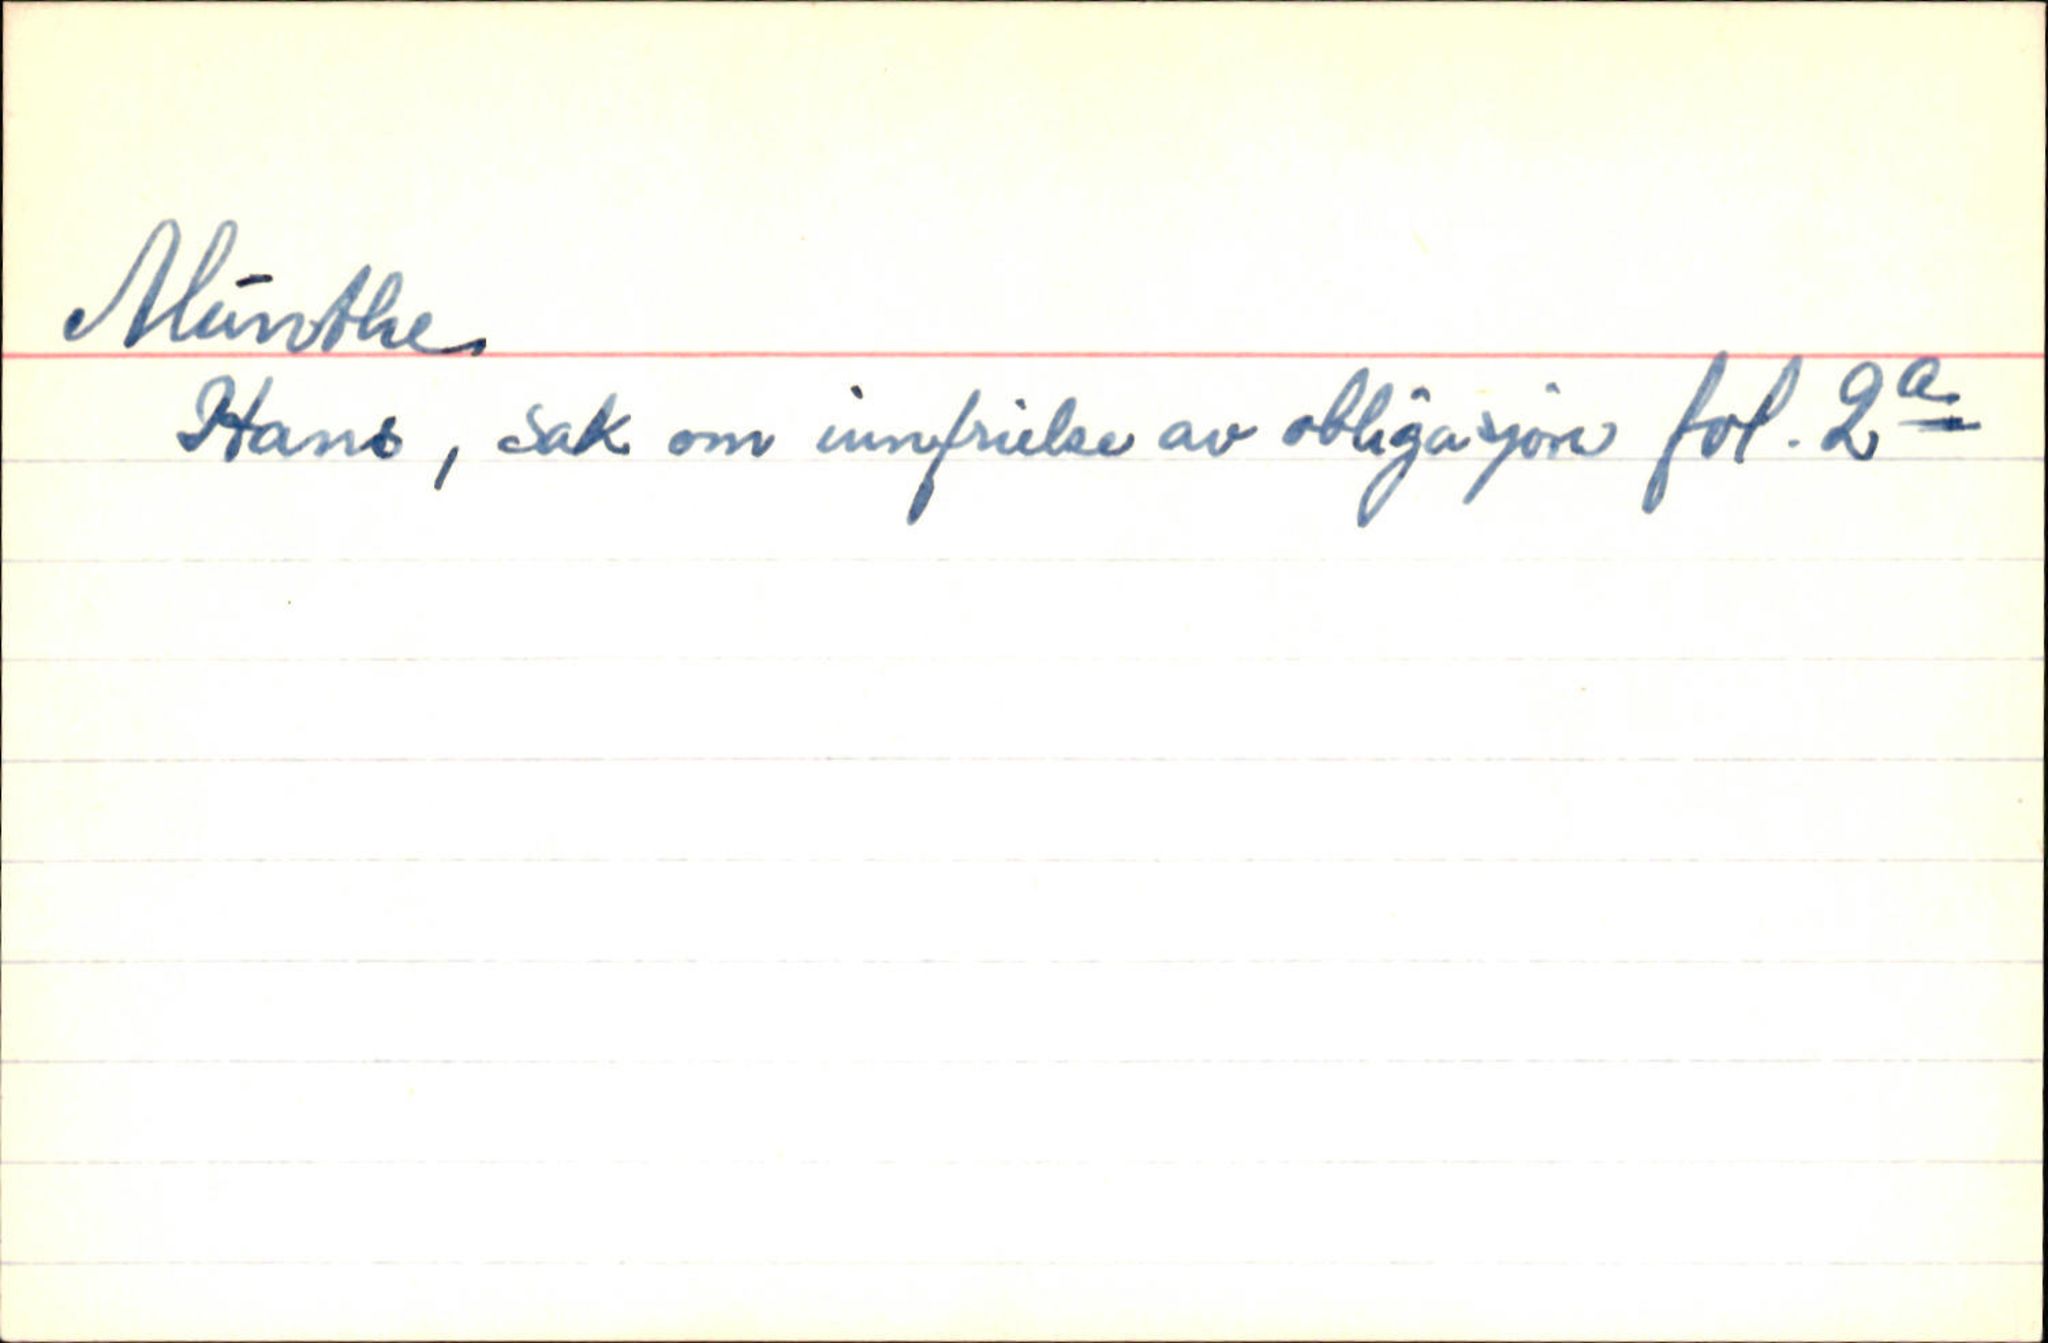 Munthe
Hans, sak om innfrielse av obligasjon fol. 2a